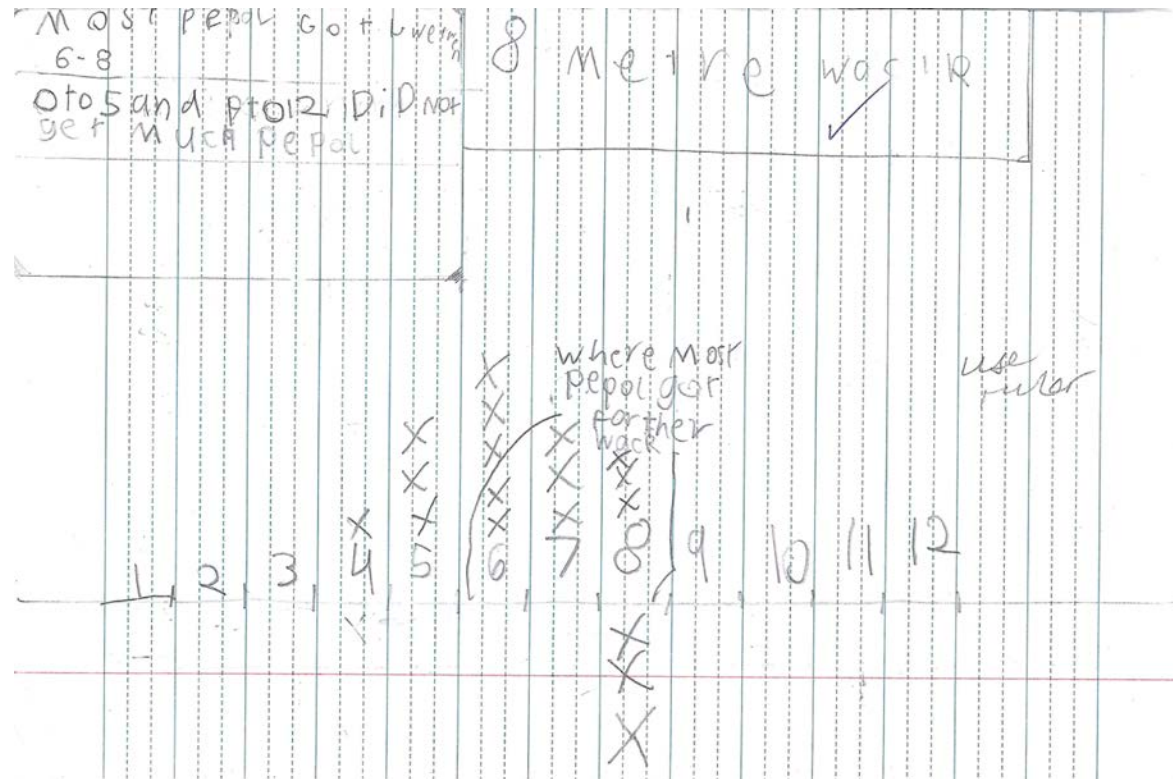 Most pepol Got
6-8
0 to 5 and 9 to 12 DiD not
get much pepol
8 metre wack
where most
pepol got
farther
wack
use
ruler
X
X
X
X X
X X X
X X X X
X X X X X
4 5 6 7 8 9 10 11 12
1 2 3
X
X
X